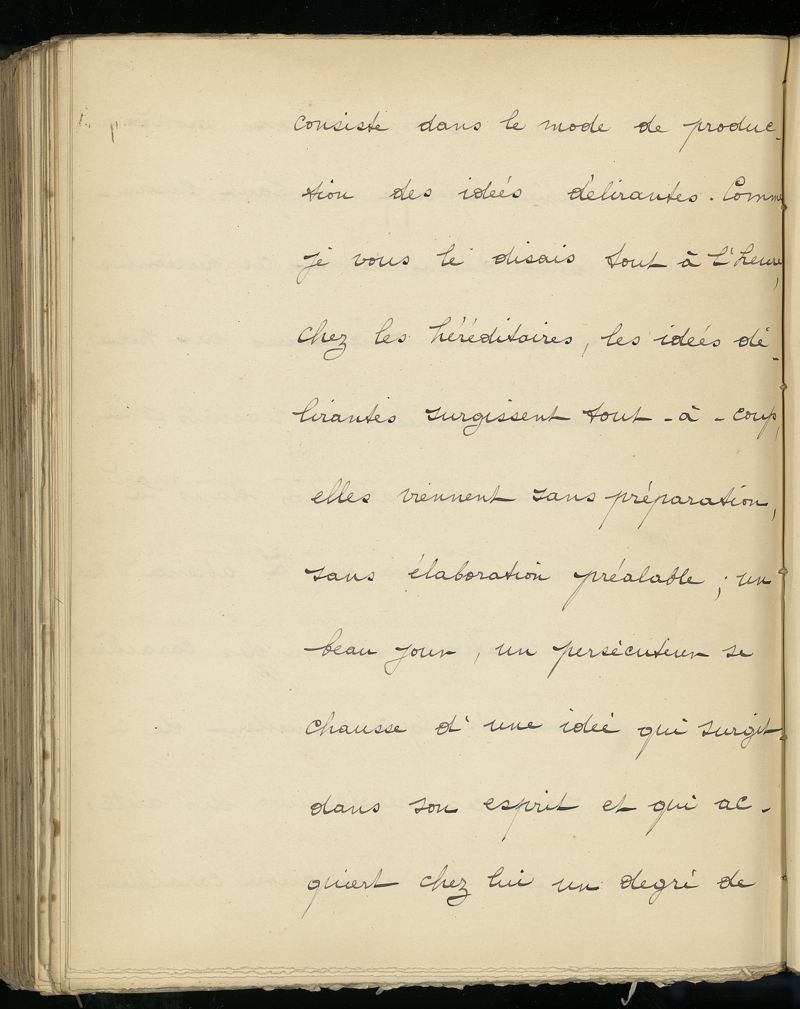 consiste dans le mode de produc-
tion des idées délirantes. Comme
je vous le disais tout à l'heure,
chez les héréditaires, les idées dé-
lirantes surgissent tout-à-coup,
elles viennent sans préparation,
sans élaboration préalable ; un
beau jour, un persécuteur se
chausse d'une idée qui surgit
dans son esprit et qui ac-
quiert chez lui un degré de